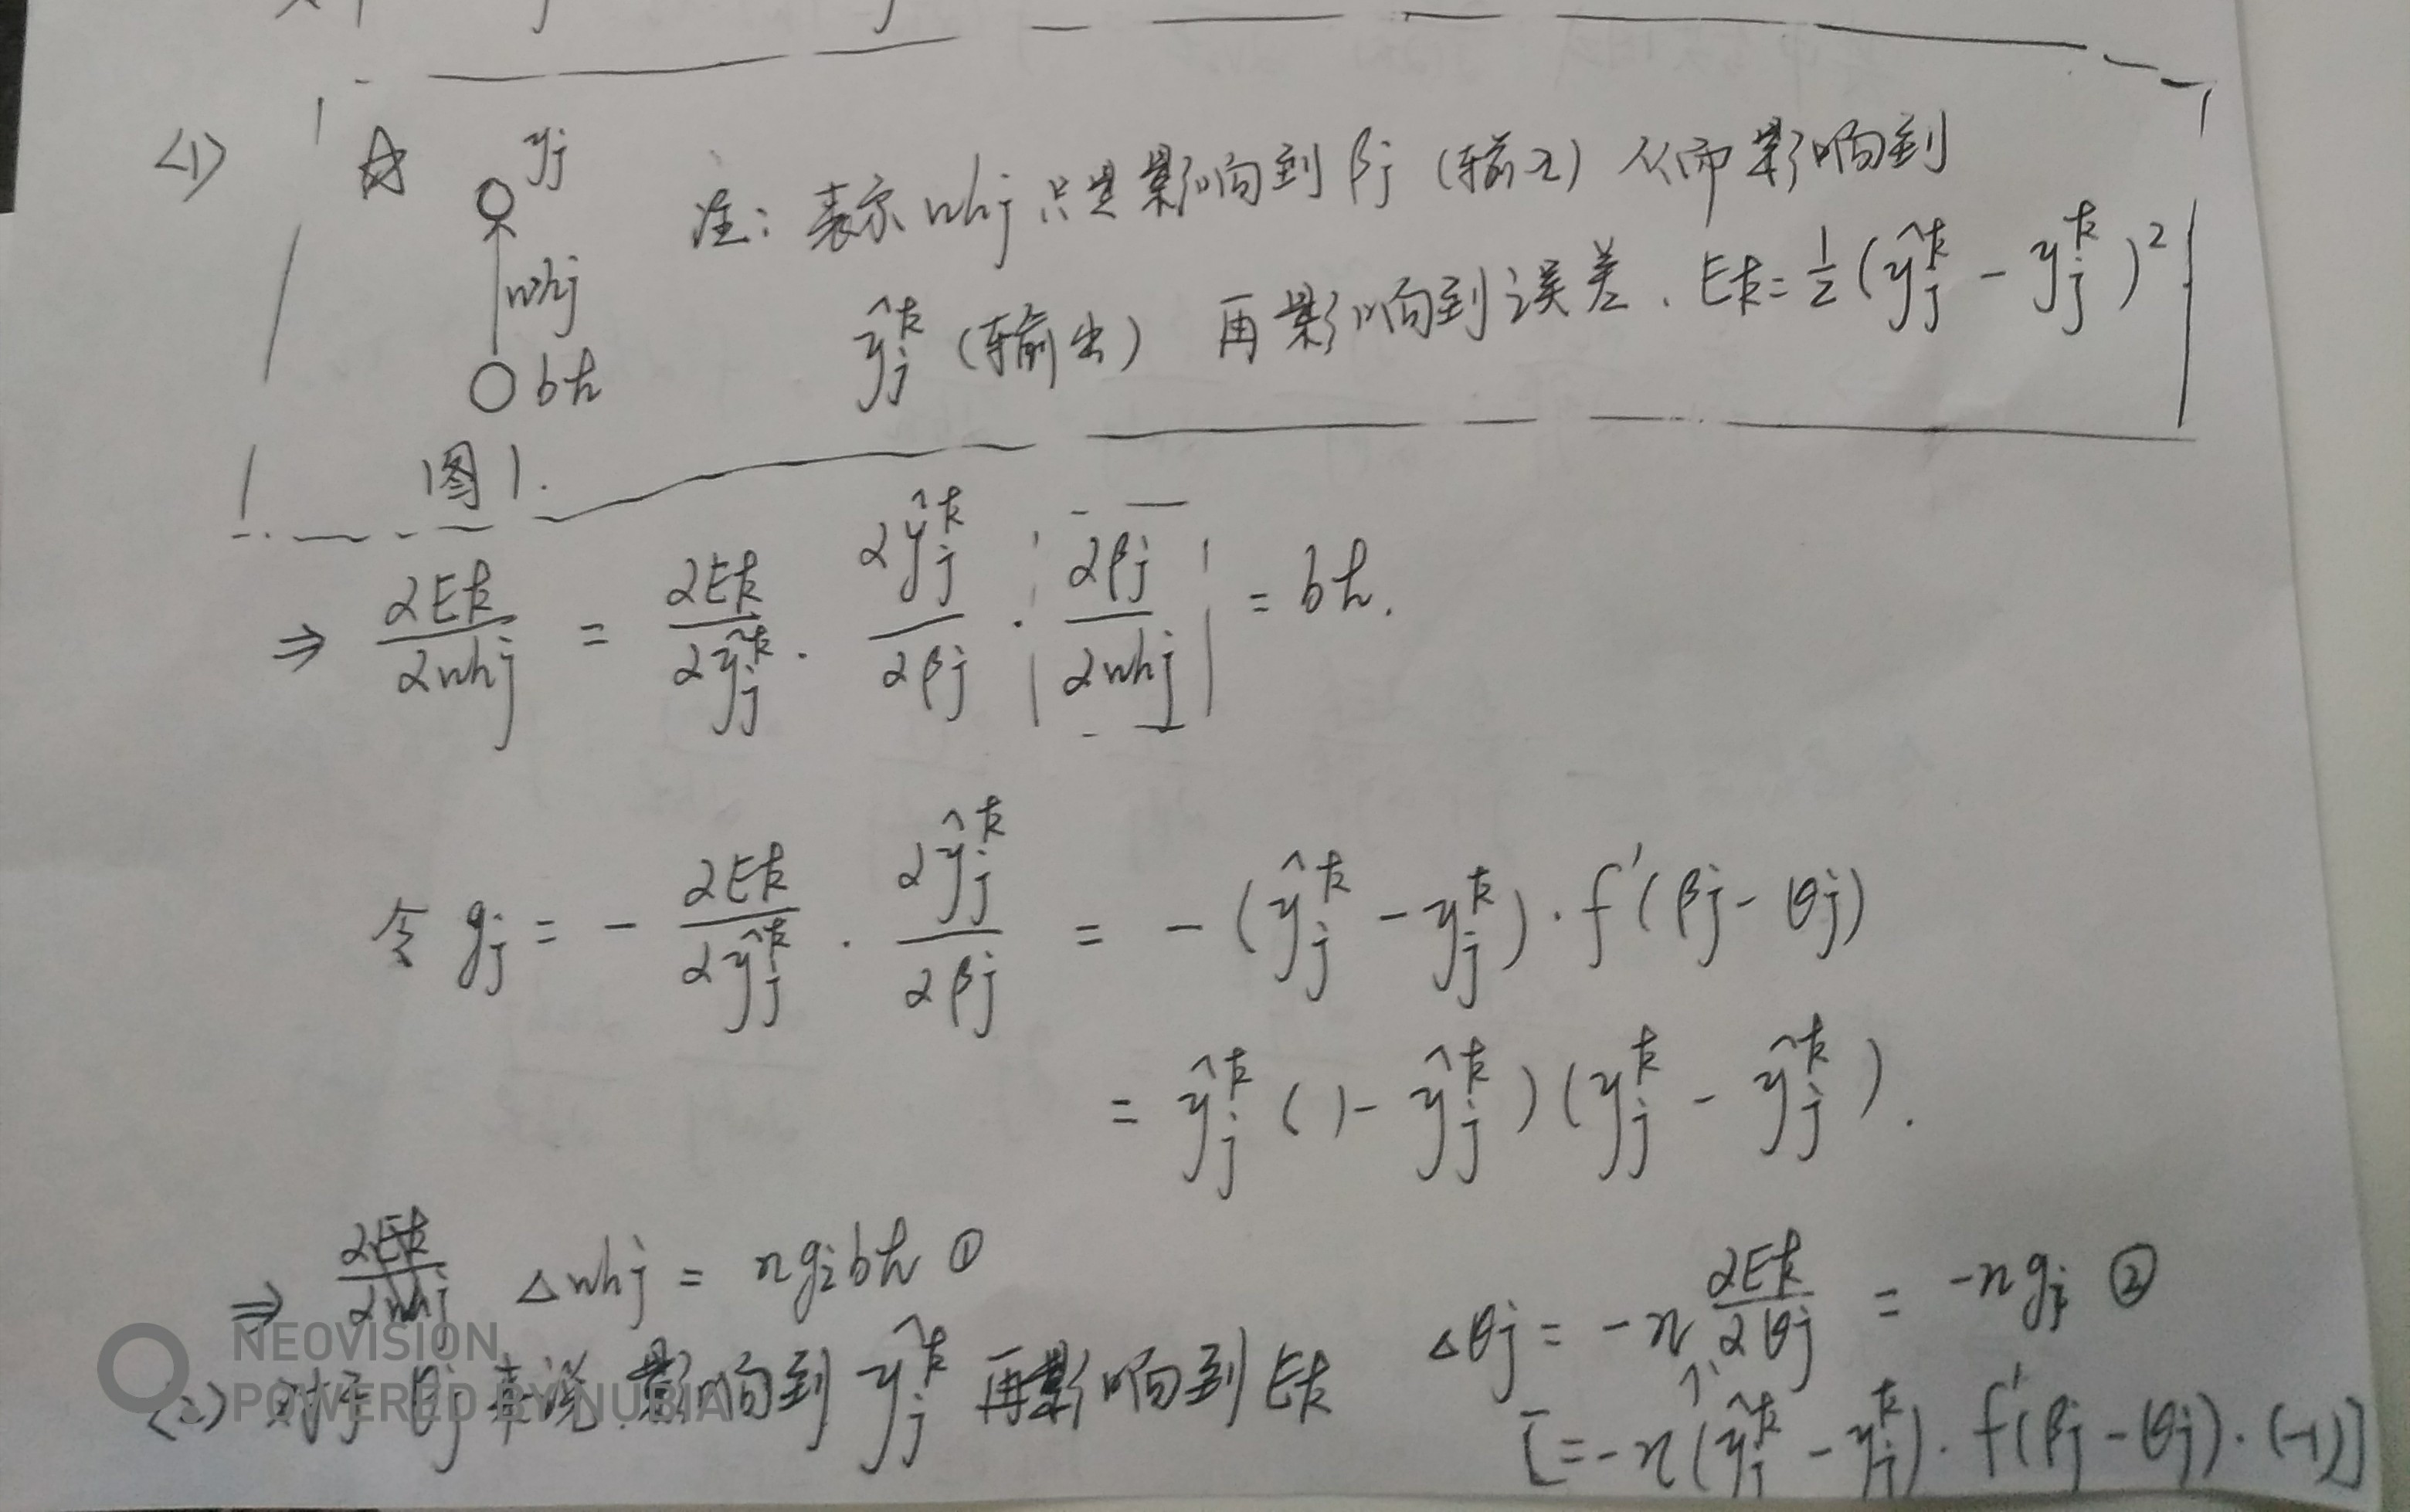 <1> ☆ yj
whj
bh
图1.
注: 表示 whj 只是影响到 βj (输入) 从而影响到
ŷj^k (输出) 再影响到误差. Ek = 1/2 (ŷj^k - yj^k)^2
⇒ ∂Ek/∂whj = ∂Ek/∂ŷj^k · ∂ŷj^k/∂βj · ∂βj/∂whj = bh.
令 gj = - ∂Ek/∂ŷj^k · ∂ŷj^k/∂βj = -(ŷj^k - yj^k) · f'(βj - θj)
= ŷj^k (1 - ŷj^k)(yj^k - ŷj^k).
⇒ △whj = ηgjbh ①
(2) 对于 θj 来说 影响到 ŷj^k 再影响到 Ek
△θj = -η ∂Ek/∂θj = -ηgj ②
[= -η(ŷj^k - yj^k) · f'(βj - θj) · (-1)]
NEOVISION
POWERED BY NUBIA